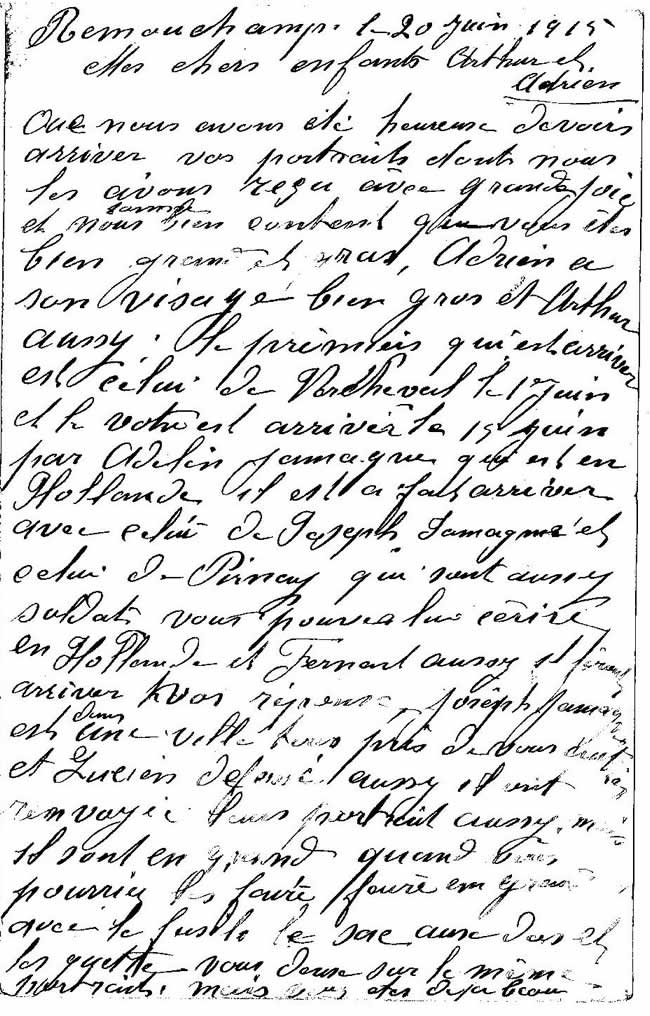 Remouchamp. le 20 Juin 1915
Mes chers enfants Arthur et
Adrien
Que nous avons été heureuse davoir
arriver vos portraits dont nous
les avons reçu avec grande joie
et nous somme bien content que vous êtes
bien grand et gras, Adrien a
son visage bien gros et Arthur
aussy. le premiers qui est arriver
est celui de le 1er Juin
et le votre est arriver le 15 Juin
par Adelin Jamagne qui est en
Hollande il est a fait arriver
avec celui de Joseph Jamagne et
celui de Pirnay qui sont aussy
soldats vous pouvea lui écrire
en Hollande et Fernant aussy il
arriver vos réponse, Joséph
est dans une ville tous près de vous
et Lucien aussy il ont
renvoyie leurs portrait aussy,
il sont en grand quand
pourriez les faire faire em grand
avec le fusile le sac aux dos et
les guette vous deux sur le même
portrait, mais vous etes deja beau